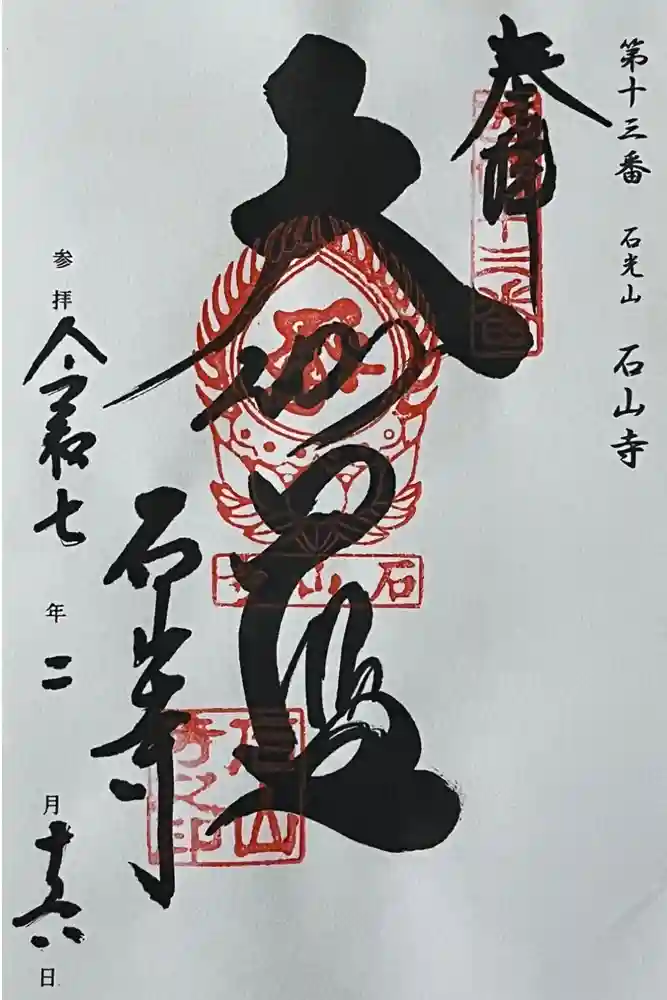 第十三番 石光山 石山寺
奉拝
大伽藍
石山寺
参拝 令和七年二月十六日
石山寺
石山寺之印